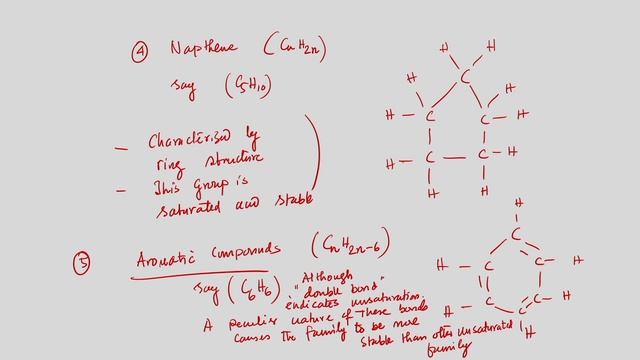 ④ Napthene (CnH2n)
say (C5H10)
- Characterised by
ring structure
- This group is
saturated and stable
H H
C
H H
H - C C - H
H - C - C - H
H H
⑤ Aromatic Compounds (CnH2n-6)
say (C6H6)
"Although
double bond"
indicates unsaturation,
A peculiar nature of these bonds
causes the family to be more
stable than other unsaturated
family
H
C
H - C C - H
H - C C - H
C
H